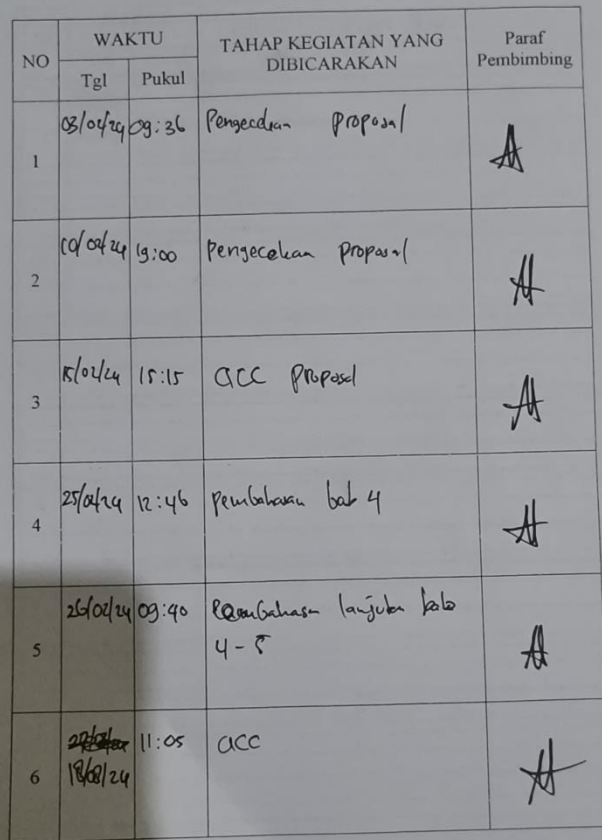 NO WAKTU TAHAP KEGIATAN YANG DIBICARAKAN Paraf Pembimbing
Tgl Pukul
1 03/02/24 09:36 Pengecekan proposal
2 10/02/24 19:00 Pengecekan proposal
3 15/02/24 15:15 acc proposal
4 25/02/24 12:46 pembahasan bab 4
5 26/02/24 09:40 Pembahasan lanjutan bab
4-5
6 11:05 acc
18/08/24